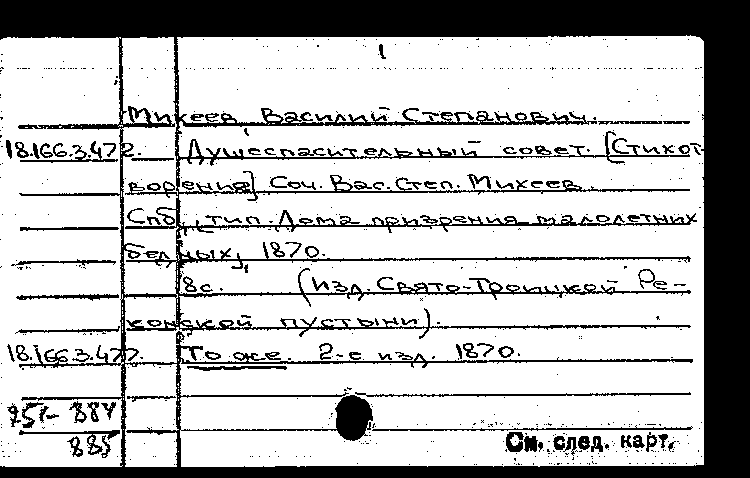 1
Михеев, Василий Степанович.
18.166.3.472. Душеспасительный совет. [Стихот-
ворения] Соч. Вас. Степ. Михеев.
Спб, тип. Дома призрения малолетних
бедных, 1870.
8с. (Изд. Свято-Троицкой Ре-
конской пустыни).
18.166.3.477. То же. 2-е изд. 1870.
884
885
См. след. карт.